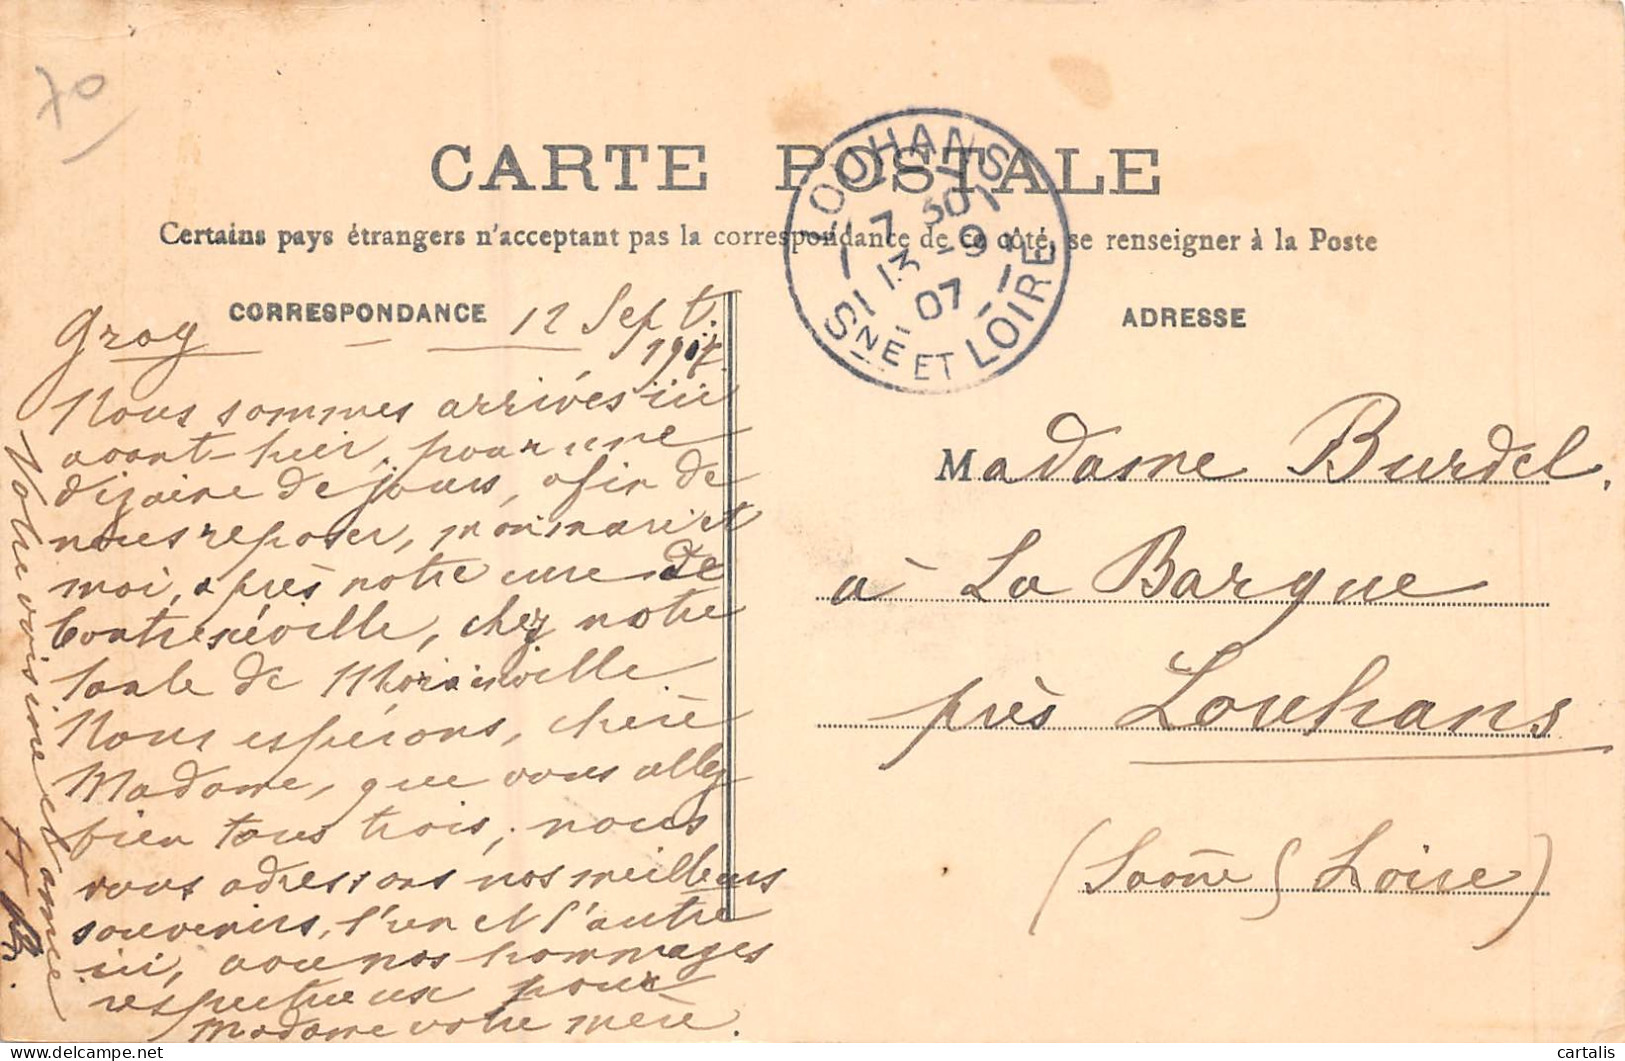 70
CARTE POSTALE
Certains pays étrangers n'acceptant pas la correspondance de ce côté, se renseigner à la Poste
LOUHANS
7 30
13 - 9
07
SNE ET LOIRE
CORRESPONDANCE
ADRESSE
Gray 12 Sept.
1907.
Nous sommes arrivés ici
avant-hier, pour une
dizaine de jours, afin de
nous reposer, mon mari et
moi, après notre cure de
Contrexéville, chez notre
tante de
Nous espérons, chère
Madame, que vous allez
bien tous trois, nous
vous adressons nos meilleurs
souvenirs, l'un et l'autre
ici, avec nos hommages
respectueux pour
Madame votre mère.
Votre voisine et amie
Madame Burdel,
à La Barque
près Louhans
(Saône & Loire)
cartalis
www.delcampe.net